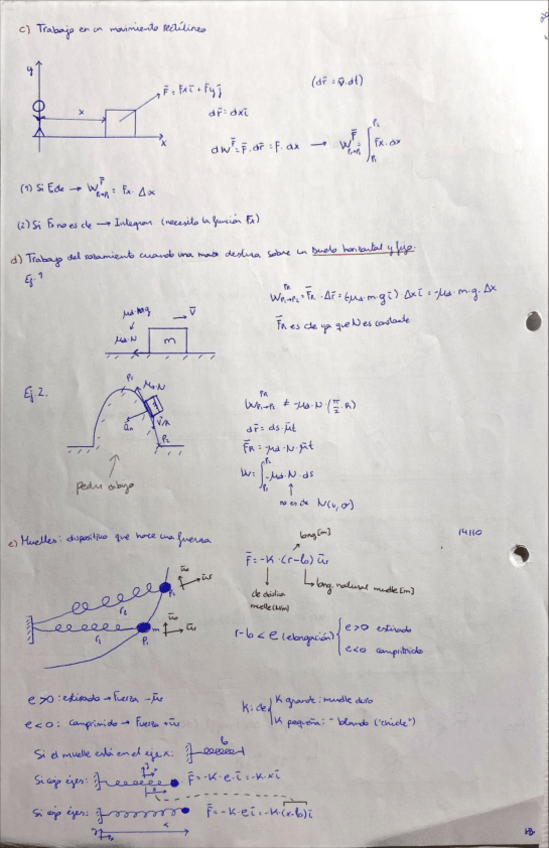 c) Trabajo en un movimiento rectilíneo
y
x
x
F̄ = Fx ī + Fy j̄
(dr̄ = v̄·dt)
dr̄ = dx ī
dW^F̄ = F̄·dr̄ = F·dx → W^F̄ P1→P2 = ∫ P1 P2 Fx·dx
(1) Si F cte → W^F̄ P1→P2 = Fx·Δx
(2) Si Fx no es cte → Integrar (necesito la función Fx)
d) Trabajo del rozamiento cuando una masa desliza sobre un suelo horizontal y fijo.
Ej. 1
W^FR P1→P2 = F̄R·Δr̄ = (-μd·m·g ī)·Δx ī = -μd·m·g·Δx
F̄R es cte ya que N es constante
μd·m·g
μd·N
v̄
m
Ej 2.
P1
μd·N
P2
W^FR P1→P2 ≠ -μd·N·(π/2·R)
dr̄ = ds·ūt
F̄R = -μd·N·ūt
W = ∫ P1 P2 -μd·N·ds
no es cte N(v, σ)
e) Muelles: dispositivo que hace una fuerza
14/10
long [m]
F̄ = -K·(r-lo) ūr
long natural muelle [m]
muelle [N/m]
r2
r1
P2
P1
m
ūr
r-lo < e (elongación) { e>0 estirado
e<0 comprimido
e>0: estirado → Fuerza -ūr
e<0: comprimido → Fuerza +ūr
K: cte { K grande: muelle duro
K pequeña: " blando ("chicle")
Si el muelle está en el eje x:
Si cojo ejes:
F̄ = -K·e·ī = -K·x ī
Si cojo ejes:
F̄ = -K·e ī = -K·(x-lo) ī